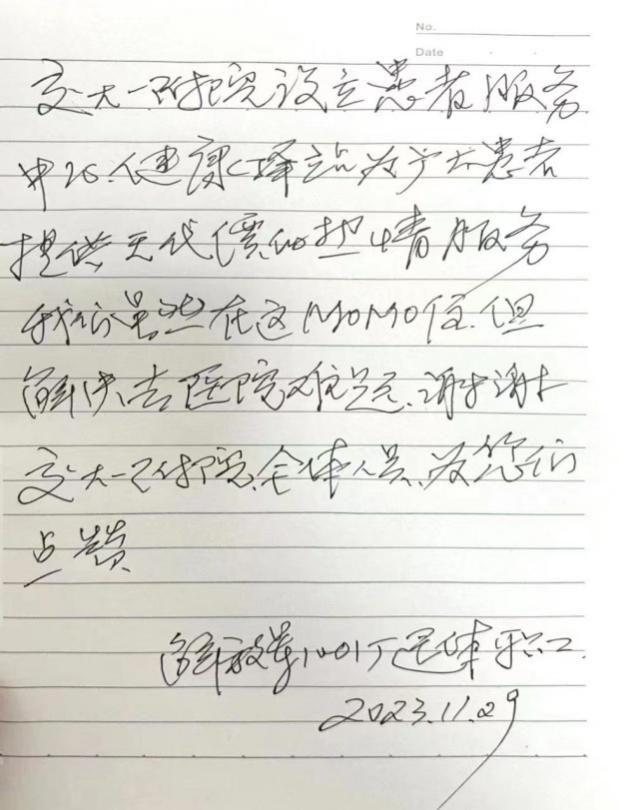 No.
Date
交大一附院设立患者服务
中心、健康驿站为广大患者
提供无代偿的热情服务
我们虽然在这MOMO住.但
解决去医院难题、谢谢
交大一附院全体人员、为您们
点赞
解放军1001厂退休职工
2023.11.29